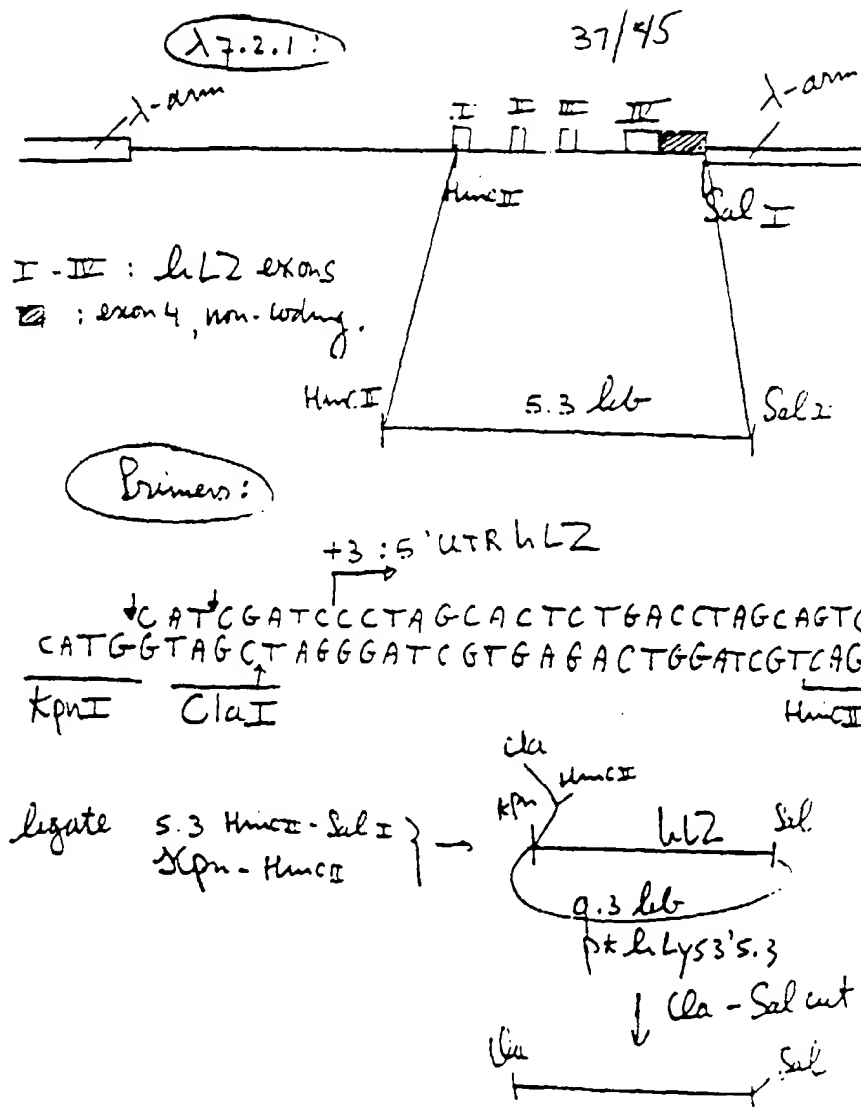 λ7.2.1:
37/45
λ-arm
λ-arm
I II III IV
HincII
Sal I
I - IV : hLZ exons
: exon 4, non-coding.
HincII
5.3 kb
Sal I
Primers:
+3 : 5' UTR hLZ
CATCGATCCCTAGCACTCTGACCTAGCAGTC
CATGGTAGCTAGGGATCGTGAGACTGGATCGTCAG
KpnI ClaI HincII
Cla
HincII
Kpn
hLZ
Sal
ligate 5.3 HincII-Sal I
Kpn-HincII
9.3 kb
hLys3'5.3
Cla - Sal cut
Cla
Sal